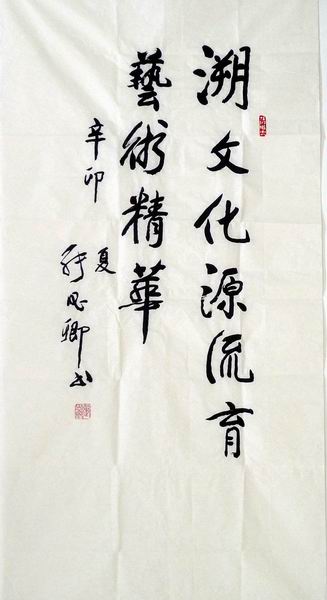 溯文化源流育
藝術精華
辛卯
夏
卿書